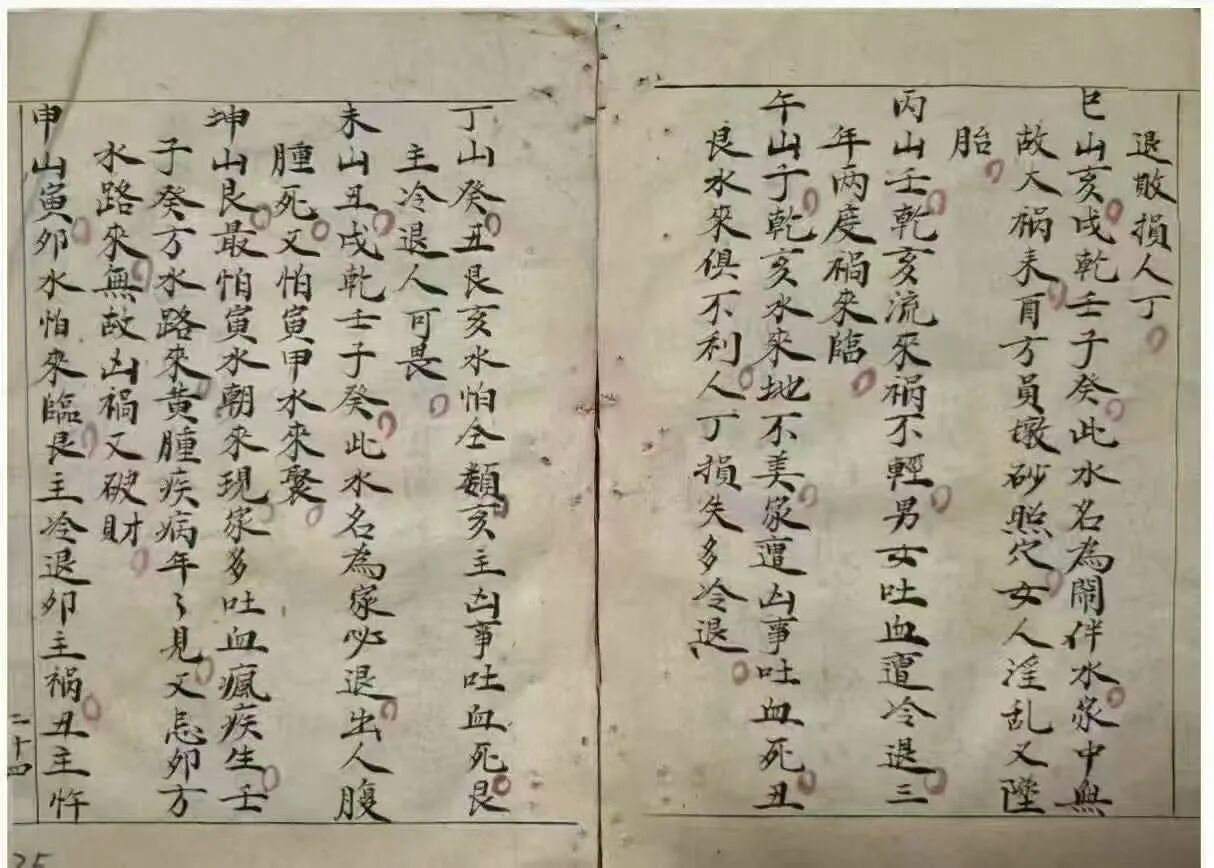 退散損人丁
巳山亥戌乾壬子癸此水名為鬧伴水家中無
故大禍来酉方員墩砂照穴女人淫乱又墮
胎
丙山壬乾亥流來禍不輕男女吐血遭冷退三
年两度禍來臨
午山子乾亥水來地不美家遭凶事吐血死丑
艮水來俱不利人丁損失多冷退
丁山癸丑艮亥水怕仝類亥主凶事吐血死艮
主冷退人可畏
未山丑戌乾壬子癸此水名為家必退出人腹
腫死又怕寅甲水來聚
坤山艮最怕寅水朝來現家多吐血瘋疾生壬
子癸方水路來黄腫疾病年々見又忌卯方
水路來無故凶禍又破財
申山寅卯水怕來臨艮主冷退卯主禍丑主忤
二十四
25